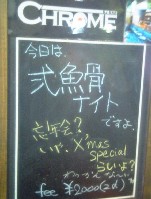 CHROME
今日は、
弐魚骨
ナイト
ですよ。
忘年会?
いや、X'mas
special
らいよ?
fee ¥2000(2d)